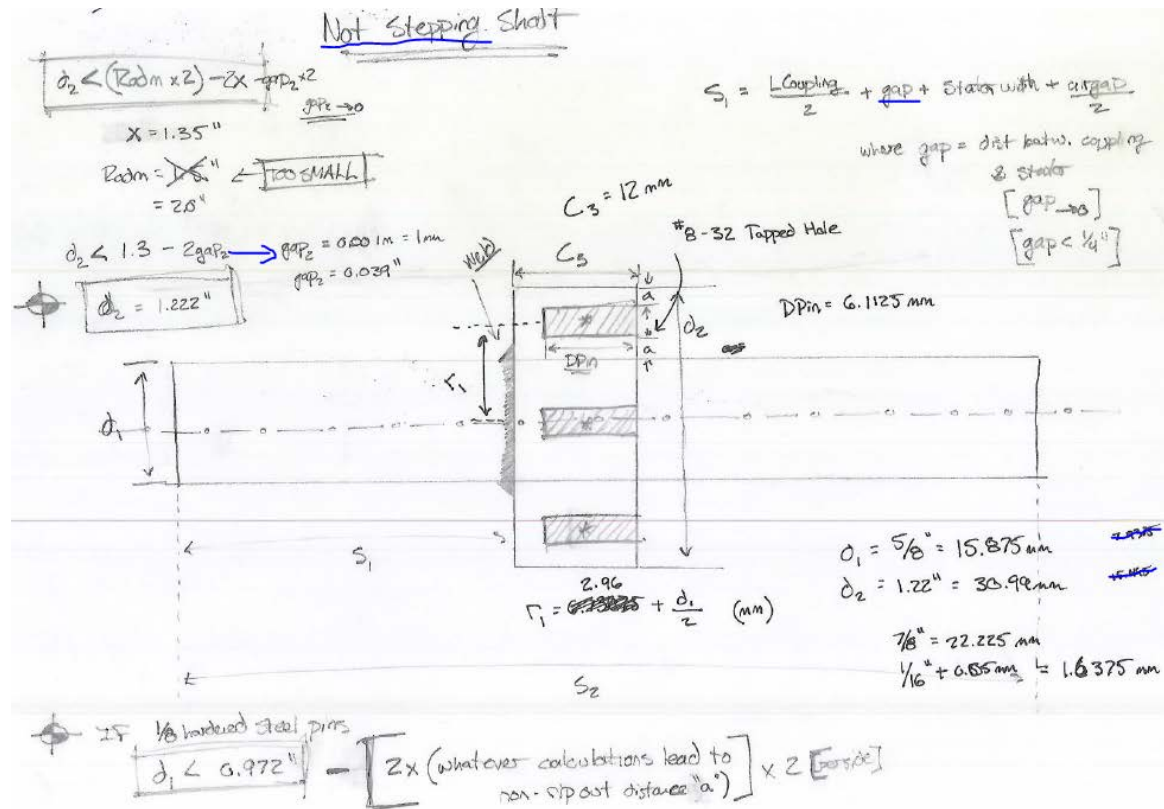 Not Stepping Shaft
d₂ < (Radm x2) - 2x - gap₂ x2
gap₂ → 0
x = 1.35"
Radm = 1.5" ← TOO SMALL
= 2.0"
d₂ < 1.3 - 2gap₂ → gap₂ = 0.001m = 1mm
gap₂ = 0.039"
d₂ = 1.222"
S₁ = LCoupling/2 + gap + Stator width + airgap/2
where gap = dist betw. coupling
& stator
[gap → 0]
[gap < 1/4"]
C₃ = 12 mm
#8-32 Tapped Hole
Weld
C₃
DPin = 6.1125 mm
a
d₂
*
a
DPin
r₁
*
d₁
*
S₁
2.96
r₁ = + d₁/2 (mm)
d₁ = 5/8" = 15.875 mm
d₂ = 1.22" = 30.99 mm
7/8" = 22.225 mm
1/16" + 0.05 mm = 1.6375 mm
S₂
IF 1/8 hardened steel pins
d₁ < 0.972" - [2x (whatever calculations lead to
non-rip out distance "a")] x 2 [per side]